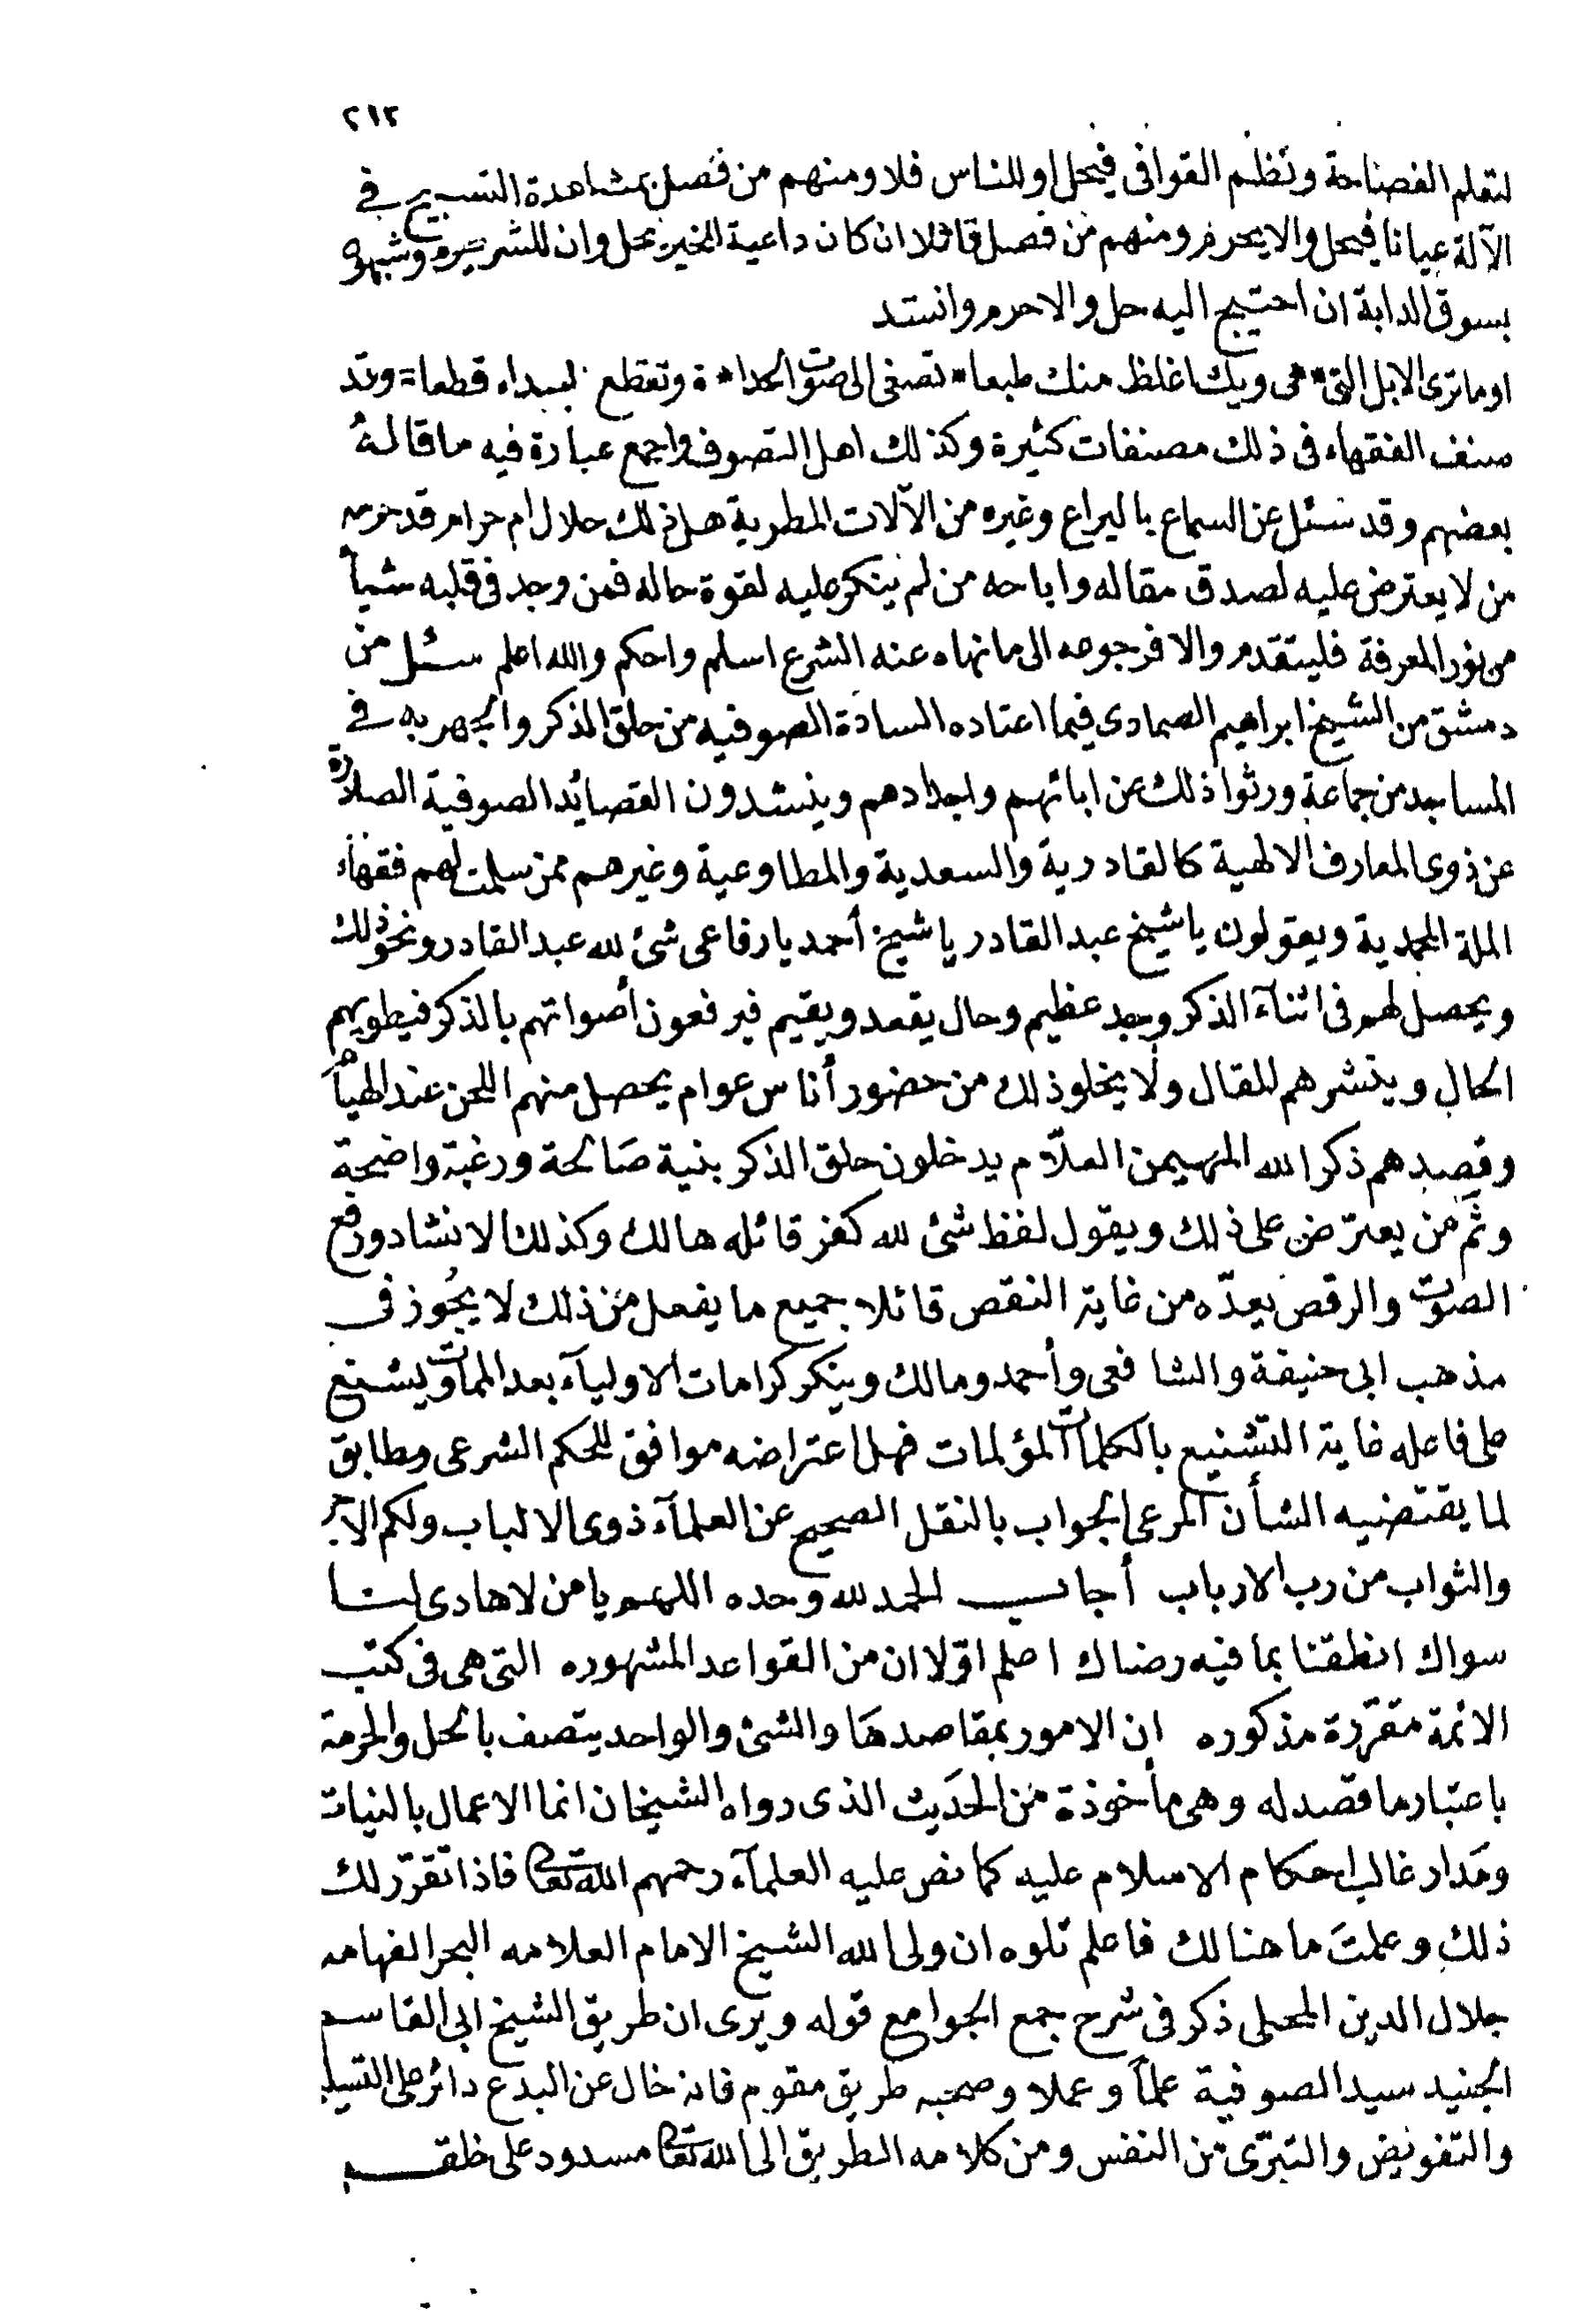 ٢١٣
لتعلم الفصاحة ونظم القوافى فيحل او للناس فلا ومنهم من فصل بمشاهدة التسبيح فى
الآلة عيانا فيحل والا يحرم ومنهم من فصل قائلا ان كان داعية للخير يحل وان للشر يحرم وشبهوه
بسوق الدابة ان احتيج اليه حل والا حرم وانشد
اوما ترى الابل التى * هى ويك اغلظ منك طبعا * تصغى الى صوت الحدا * ة وتقطع البيداء قطعا = وقد
صنف الفقهاء فى ذلك مصنفات كثيرة وكذلك اهل التصوف واجمع عبارة فيه ما قاله
بعضهم وقد سئل عن السماع باليراع وغيره من الآلات المطربة هل ذلك حلال ام حرام قد حرمه
من لا يعترض عليه لصدق مقاله واباحه من لم ينكر عليه لقوة حاله فمن وجد فى قلبه شيأ
من نور المعرفة فليتقدم والا فرجوعه الى ما نهاه عنه الشرع اسلم واحكم والله اعلم سئل من
دمشق من الشيخ ابراهيم الصمادى فيما اعتاده السادة الصوفيه من حلق الذكر والجهر به فى
المساجد من جماعة ورثوا ذلك عن ابائهم واجدادهم وينشدون القصائد الصوفية الصادرة
عن ذوى المعارف الالهية كالقادرية والسعدية والمطاوعية وغيرهم ممن سلمت لهم فقهاء
الملة المحمدية ويقولون يا شيخ عبد القادر يا شيخ أحمد يا رفاعى شئ لله عبد القادر ونحو ذلك
ويحصل لهم فى اثنآء الذكر وجد عظيم وحال يقعد ويقيم فيرفعون أصواتهم بالذكر فيطويهم
الحال وينشرهم للمقال ولا يخلو ذلك من حضور أناس عوام يحصل منهم اللحن عند الهيام
وقصدهم ذكر الله المهيمن العلّام يدخلون حلق الذكر بنية صالحة ورغبة واضحة
وثَم من يعترض على ذلك ويقول لفظ شئ لله كفر قائله هالك وكذلك الانشاد ورفع
الصوت والرقص يعدّه من غاية النقص قائلا جميع ما يفعل من ذلك لا يجُوز فى
مذهب ابى حنيفة والشافعى وأحمد ومالك وينكر كرامات الاوليآء بعد الممات ويشنع
على فاعله غاية التشنيع بالكلمات المؤلمات فهل اعتراضه موافق للحكم الشرعى ومطابق
لما يقتضيه الشأن المرعى الجواب بالنقل الصحيح عن العلمآء ذوى الالباب ولكم الاجر
والثواب من رب الارباب أجاب الحمد لله وحده اللهم يا من لا هادى لنا
سواك انطقنا بما فيه رضاك اعلم اوّلا ان من القواعد المشهوره التى هى فى كتب
الائمة مقرّرة مذكوره ان الامور بمقاصدهَا والشئ والواحد يتصف بالحل والحرمة
باعتبار ما قصد له وهى مأخوذة من الحديث الذى رواه الشيخان انما الاعمال بالنيات
ومَدار غالب احكام الاسلام عليه كما نص عليه العلمآء رحمهم الله تعالى فاذا تقرّر لك
ذلك وعلمتَ ما هنالك فاعلم تلوه ان ولى الله الشيخ الامام العلامه البحر الفهامه
جلال الدين المحلى ذكر فى شرح جمع الجوامع قوله ويرى ان طريق الشيخ ابى القاسم
الجنيد سيد الصوفية علمًا وعملا وصحبه طريق مقوم فانه خال عن البدع دائر على التسليم
والتفويض والتبرّى من النفس ومن كلامه الطريق الى الله تعالى مسدود على خلقه